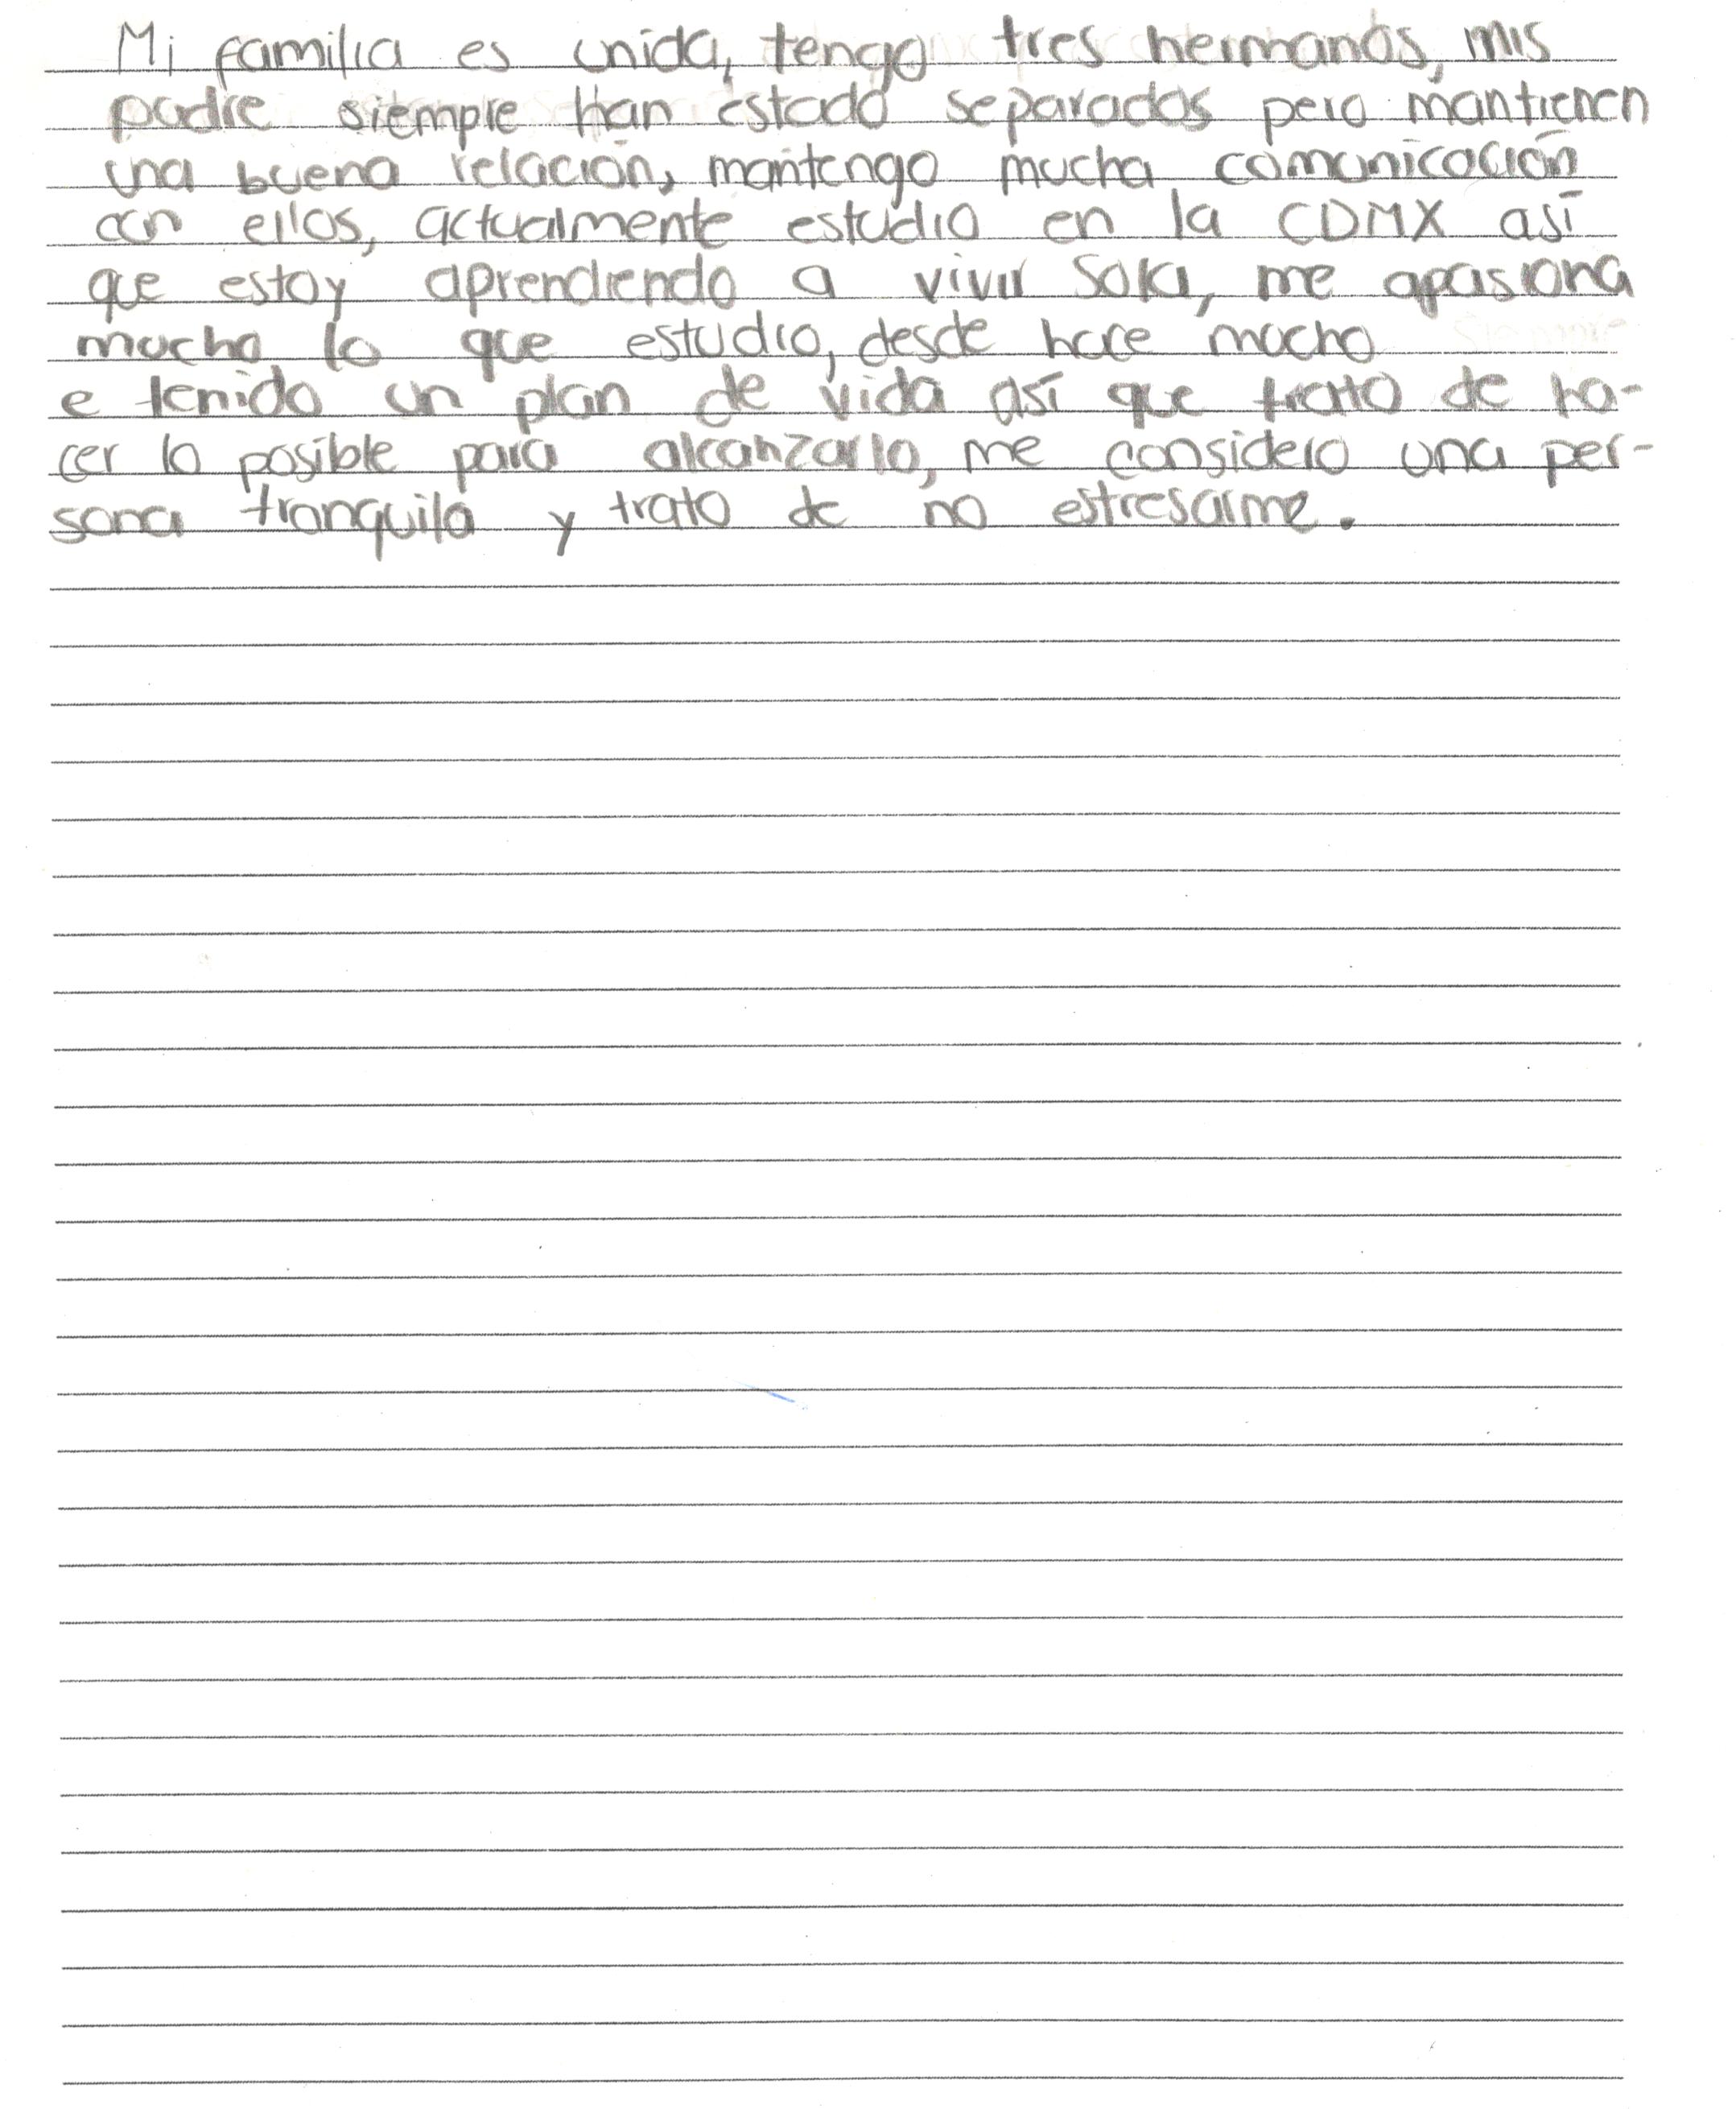 Mi familia es unida, tengo tres hermanos, mis
padre siempre han estado separados pero mantienen
una buena relación, mantengo mucha comunicación
con ellos, actualmente estudio en la CDMX así
que estoy aprendiendo a vivir sola, me apasiona
mucho lo que estudio, desde hace mucho
e tenido un plan de vida así que trato de ha-
cer lo posible para alcanzarlo, me considero una per-
sona tranquila y trato de no estresarme.